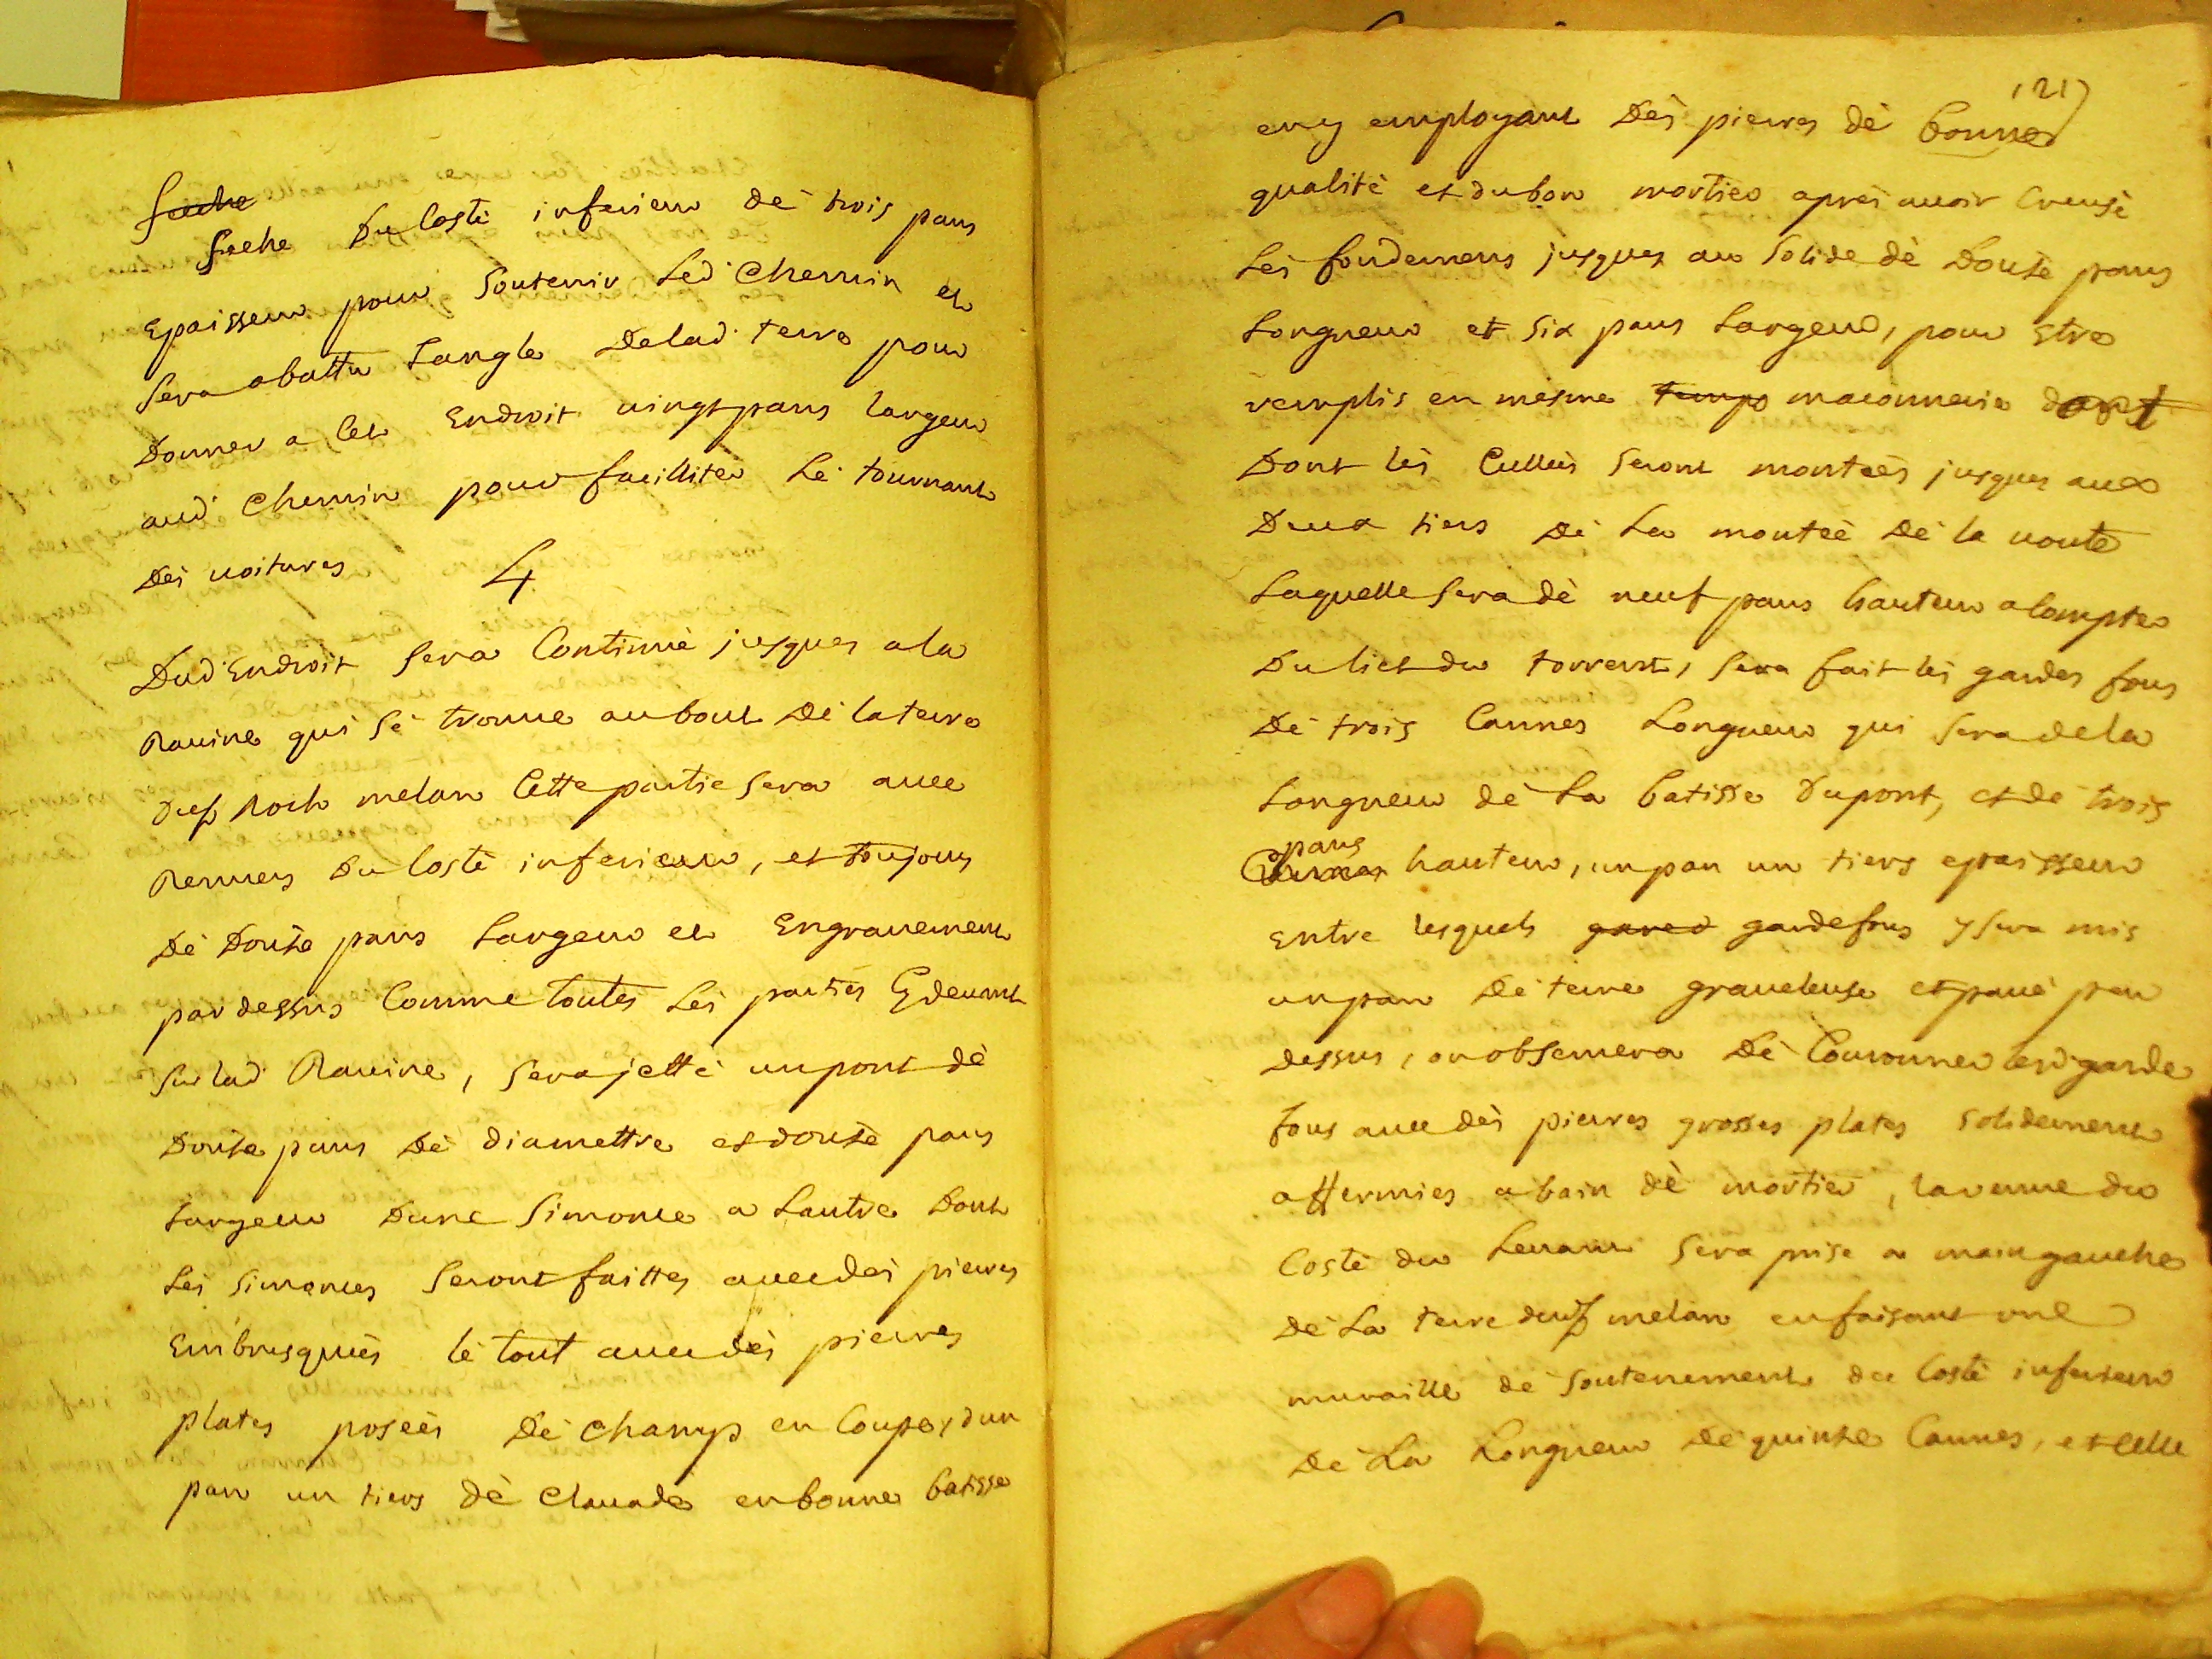 seche
seche Du Costé inferieur dé trois pans
Epaisseur pour Soutenir Led' Chemin et
Sera abattu Langle Delad' terre pour
Donner a Cet Endroit vingt pans largeur
aud' Chemin pour facilliter Lé tournant
Dés voitures
4
Dud' Endroit Sera Continué jusques a la
Ravine qui Sé trouve au bout Dé la terre
Roch melan Cette partie Sera avec
Du Costé inferieur, et toujours
Dé Douze pans Largeur et Engravement
par dessus Comme toutes Lés parties Cy devant
Sur lad' Ravine, Sera jetté un pont dé
Douze pans Dé diamettre et douze pans
Largeur Dune Simousse a Lautre Dont
Lés Seront faittes avec dés pierres
Embrusqués lé tout avec dés pierres
plates posées Dé champ en Coupe, dun
pan un tiers dé Clavade en bonne batisse
121
en y employant Dés pierres dé bonne
qualité et du bon mortier aprés avoir Creusé
Lés fondemens jusques au Solide dé Douze pans
Longueur et Six pans Largeur, pour Etre
remplis en mesme temps maconnerie dont
Dont lés Cullées Seront montées jusques aux
Deux tiers Dé La montée Dé la voute
Laquelle Sera dé neuf pans hauteur a Compter
Du lict du torrent, Sera fait lés gardes fous
Dé trois Cannes Longueur qui Sera de la
Longueur dé La batisse Dupont, et dé trois
pans
Cannes hauteur, un pan un tiers epaisseur
Entre lesquels gardefous y Sera mis
un pan Dé terre graveleuse et pavé par
dessus, on observera Dé Couronner lesd' garde
fous avec dés pierres grosses plates Solidement
affermies a bain dé mortier, lavenue du
Costé du Levant Sera prise a main gauche
Dé La terre melan en faisant une
muraille dé Soutenement du Costé inferieur
Dé La Longueur Dé quinze Cannes, et celle